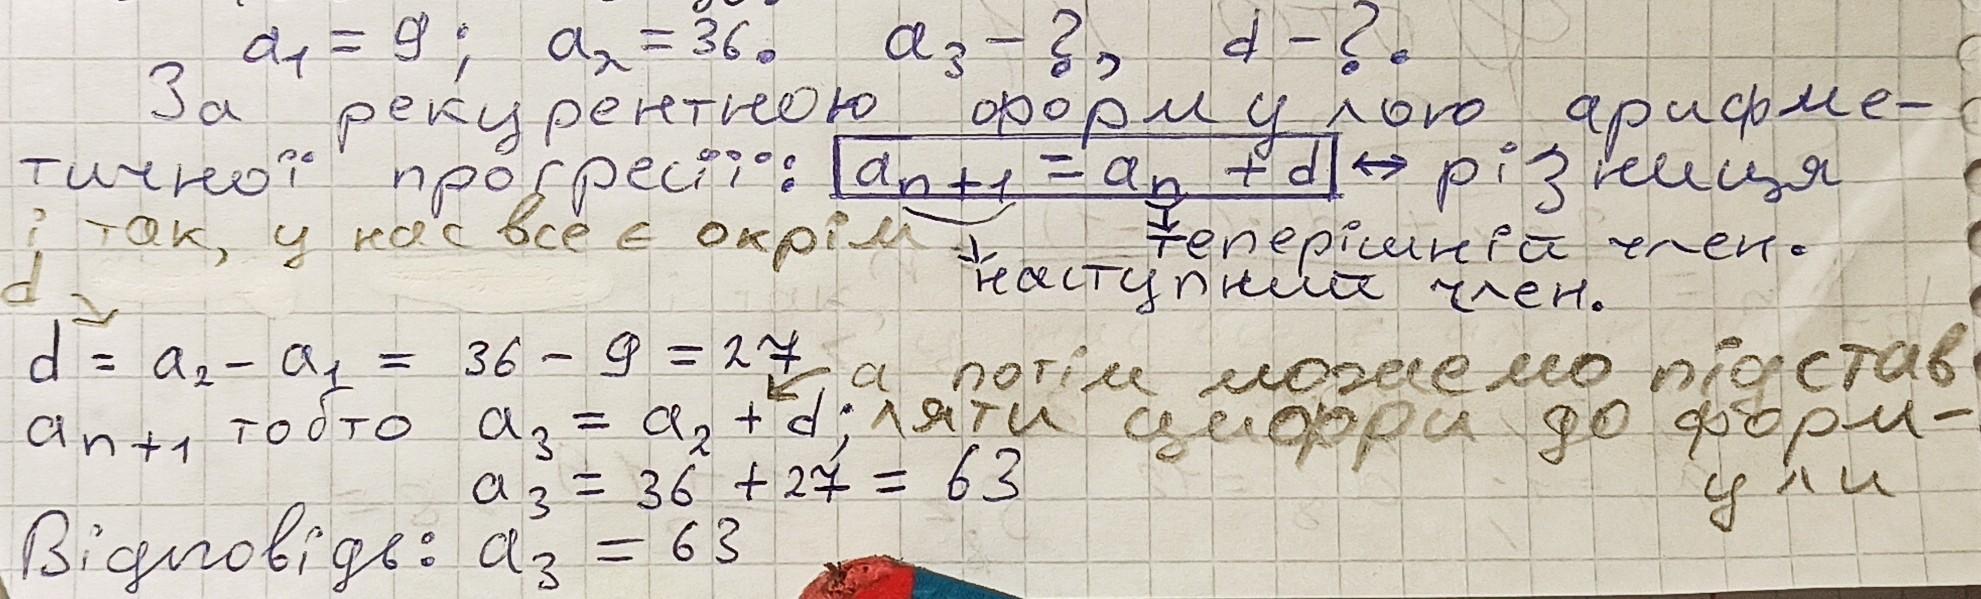 a₁ = 9; a₂ = 36. a₃ - ?, d - ?.
За рекурентною формулою арифме-
тичної прогресії: aₙ₊₁ = aₙ + d ↔ різниця
і так, у нас все є окрім
теперішній член.
d
наступний член.
d = a₂ - a₁ = 36 - 9 = 27
а потім можемо підстав
aₙ₊₁ тобто a₃ = a₂ + d; ляти цифри до форм-
a₃ = 36 + 27 = 63
ули
Відповідь: a₃ = 63